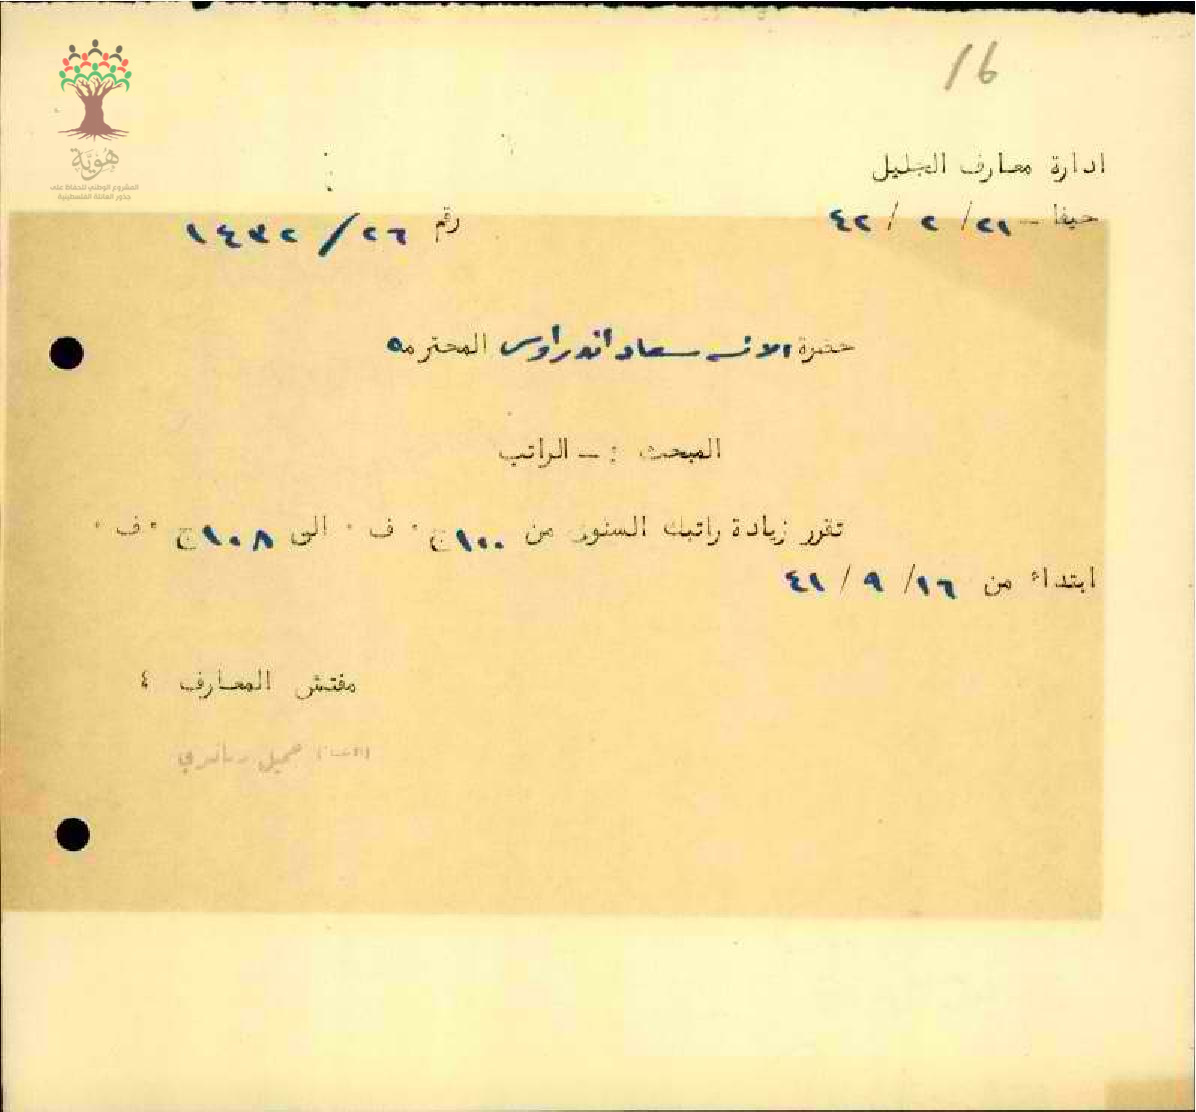 16
هُوِيَّة
المشروع الوطني للحفاظ على
جذور العائلة الفلسطينية
ادارة معارف الجليل
حيفا - ٢١ / ٢ / ٤٢
رقم ٢٦ / ١٤٣٢
حضرة الانسه سعاد اندراوس المحترمه
المبحث : - الراتب
تقرر زيادة راتبك السنوى من ١٠٠ ج ٠ ف ٠ الى ١٠٨ ج ٠ ف ٠
ابتداء من ١٦ / ٩ / ٤١
مفتش المعارف ٤
جميل